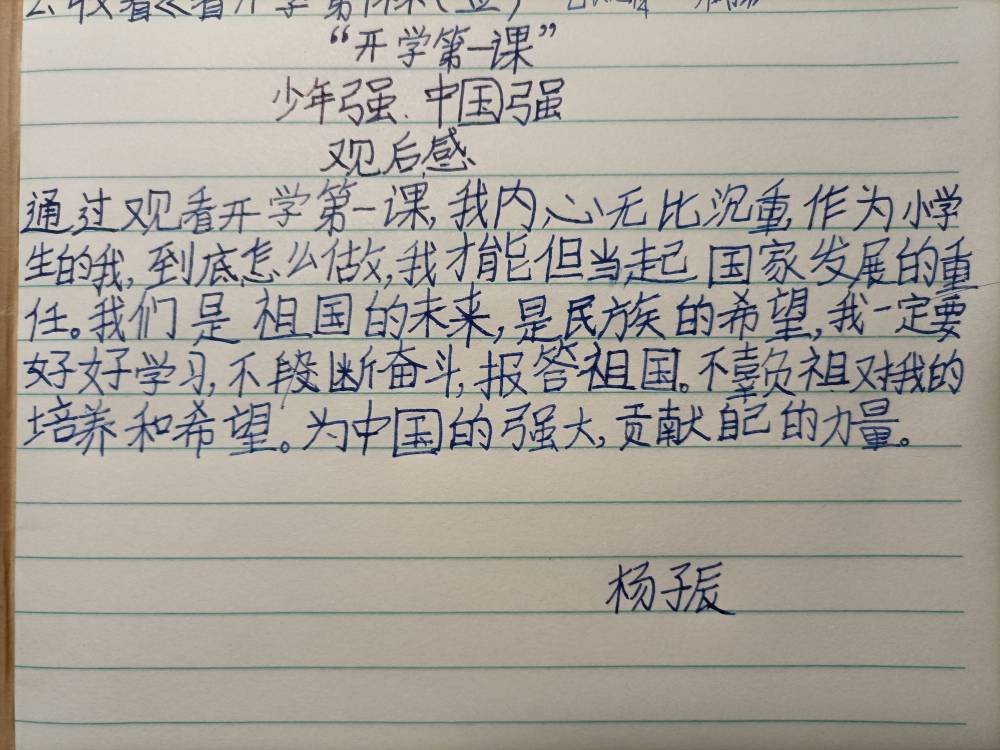 收看《看开学第
“开学第一课”
少年强.中国强
观后感
通过观看开学第一课,我内心无比沉重,作为小学
生的我,到底怎么做,我才能但当起国家发展的重
任。我们是祖国的未来,是民族的希望,我一定要
好好学习,不段断奋斗,报答祖国。不辜负祖对我的
培养和希望。为中国的强大,贡献自己的力量。
杨子辰